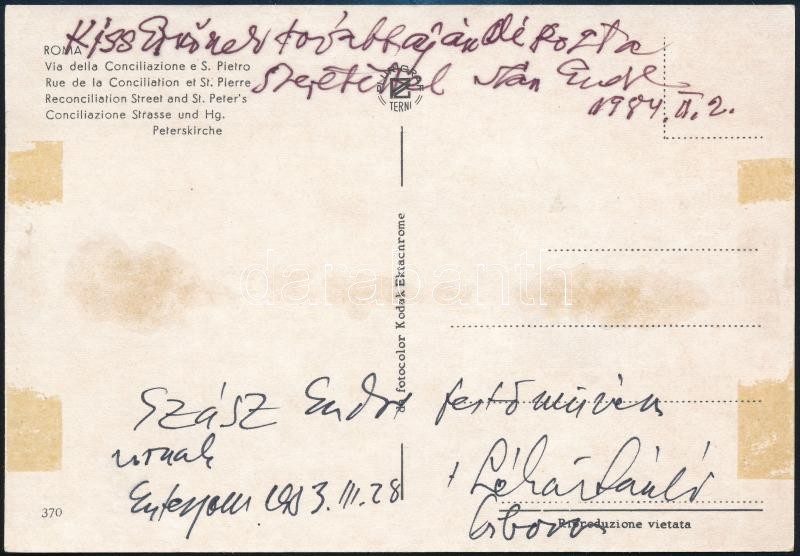 Kiss Ernőnek továbbajándékozta
szeretettel Szász Endre
1984. II. 2.
ROMA
Via della Conciliazione e S. Pietro
Rue de la Conciliation et St. Pierre
Reconciliation Street and St. Peter's
Conciliazione Strasse und Hg.
Peterskirche
TERNI
da fotocolor Kodak Ektachrome
darabanth
SZÁSZ Endre festőművész
urnak
1983. III. 28
+ Lékai László
370
Riproduzione vietata